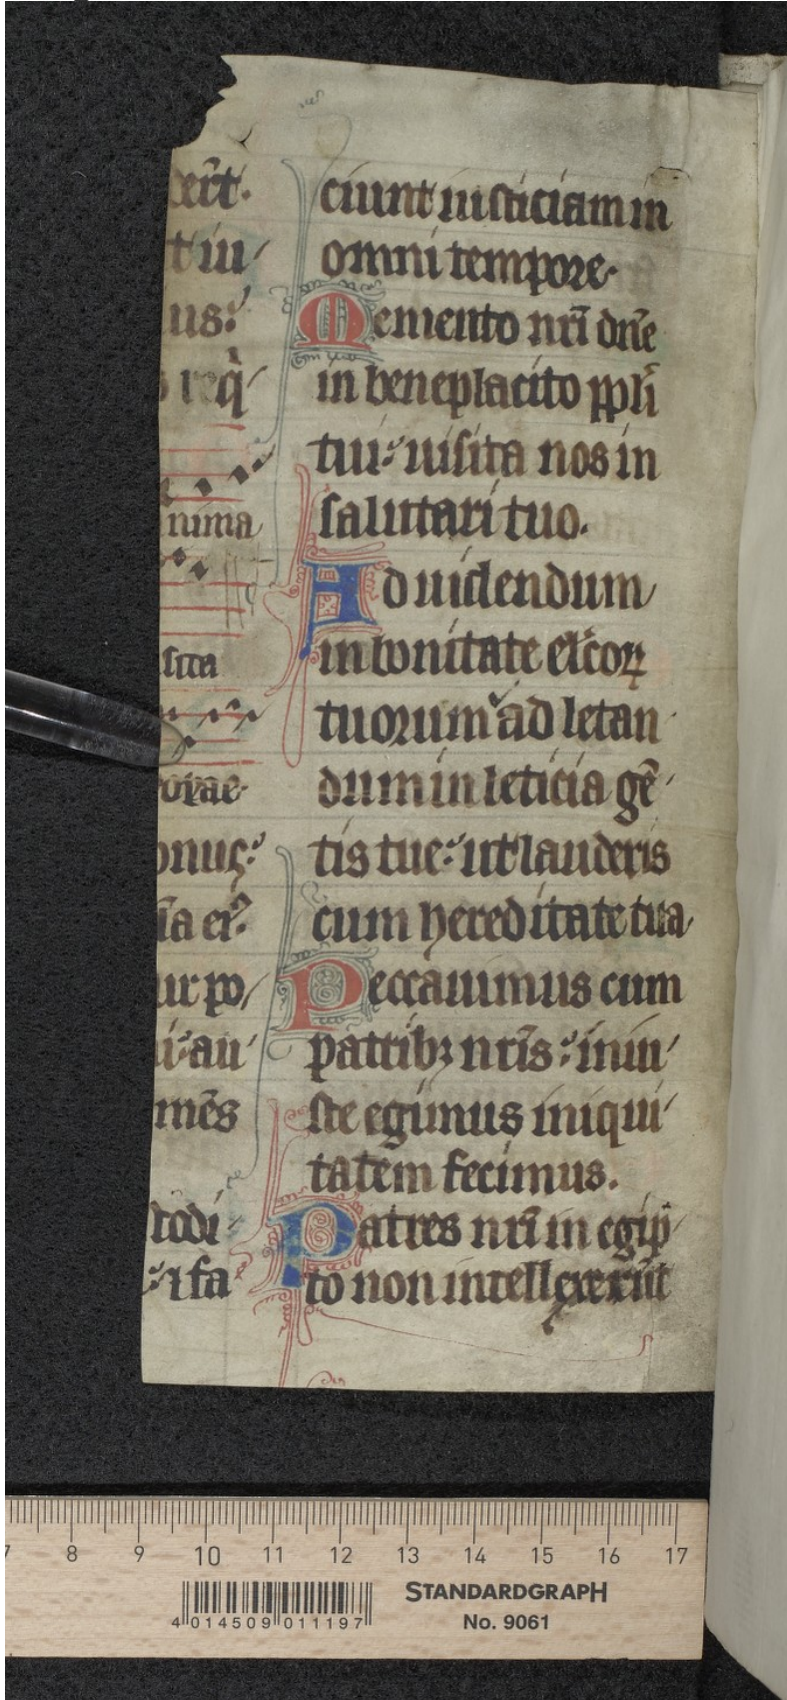 cert.
t iu
us:
s req̇
nima
sita
ovae.
onus:
ia ei?
ur po
i: au
mēs
todi
: ⁊ fa
ciunt iusticiam in
omni tempore.
Memento nr̄i dn̄e
in beneplacito pp̄li
tui: uisita nos in
salutari tuo.
Ad uidendum
in bonitate elc̄oꝝ
tuorum ad letan
dum in leticia gē
tis tue: ut lauderis
cum hereditate tua
Peccauimus cum
patribꝫ nr̄is: iniu
ste egimus iniqui
tatem fecimus.
Patres nr̄i in egip
to non intellexer̄ūt
7 8 9 10 11 12 13 14 15 16 17
STANDARDGRAPH
No. 9061
4 014509 011197